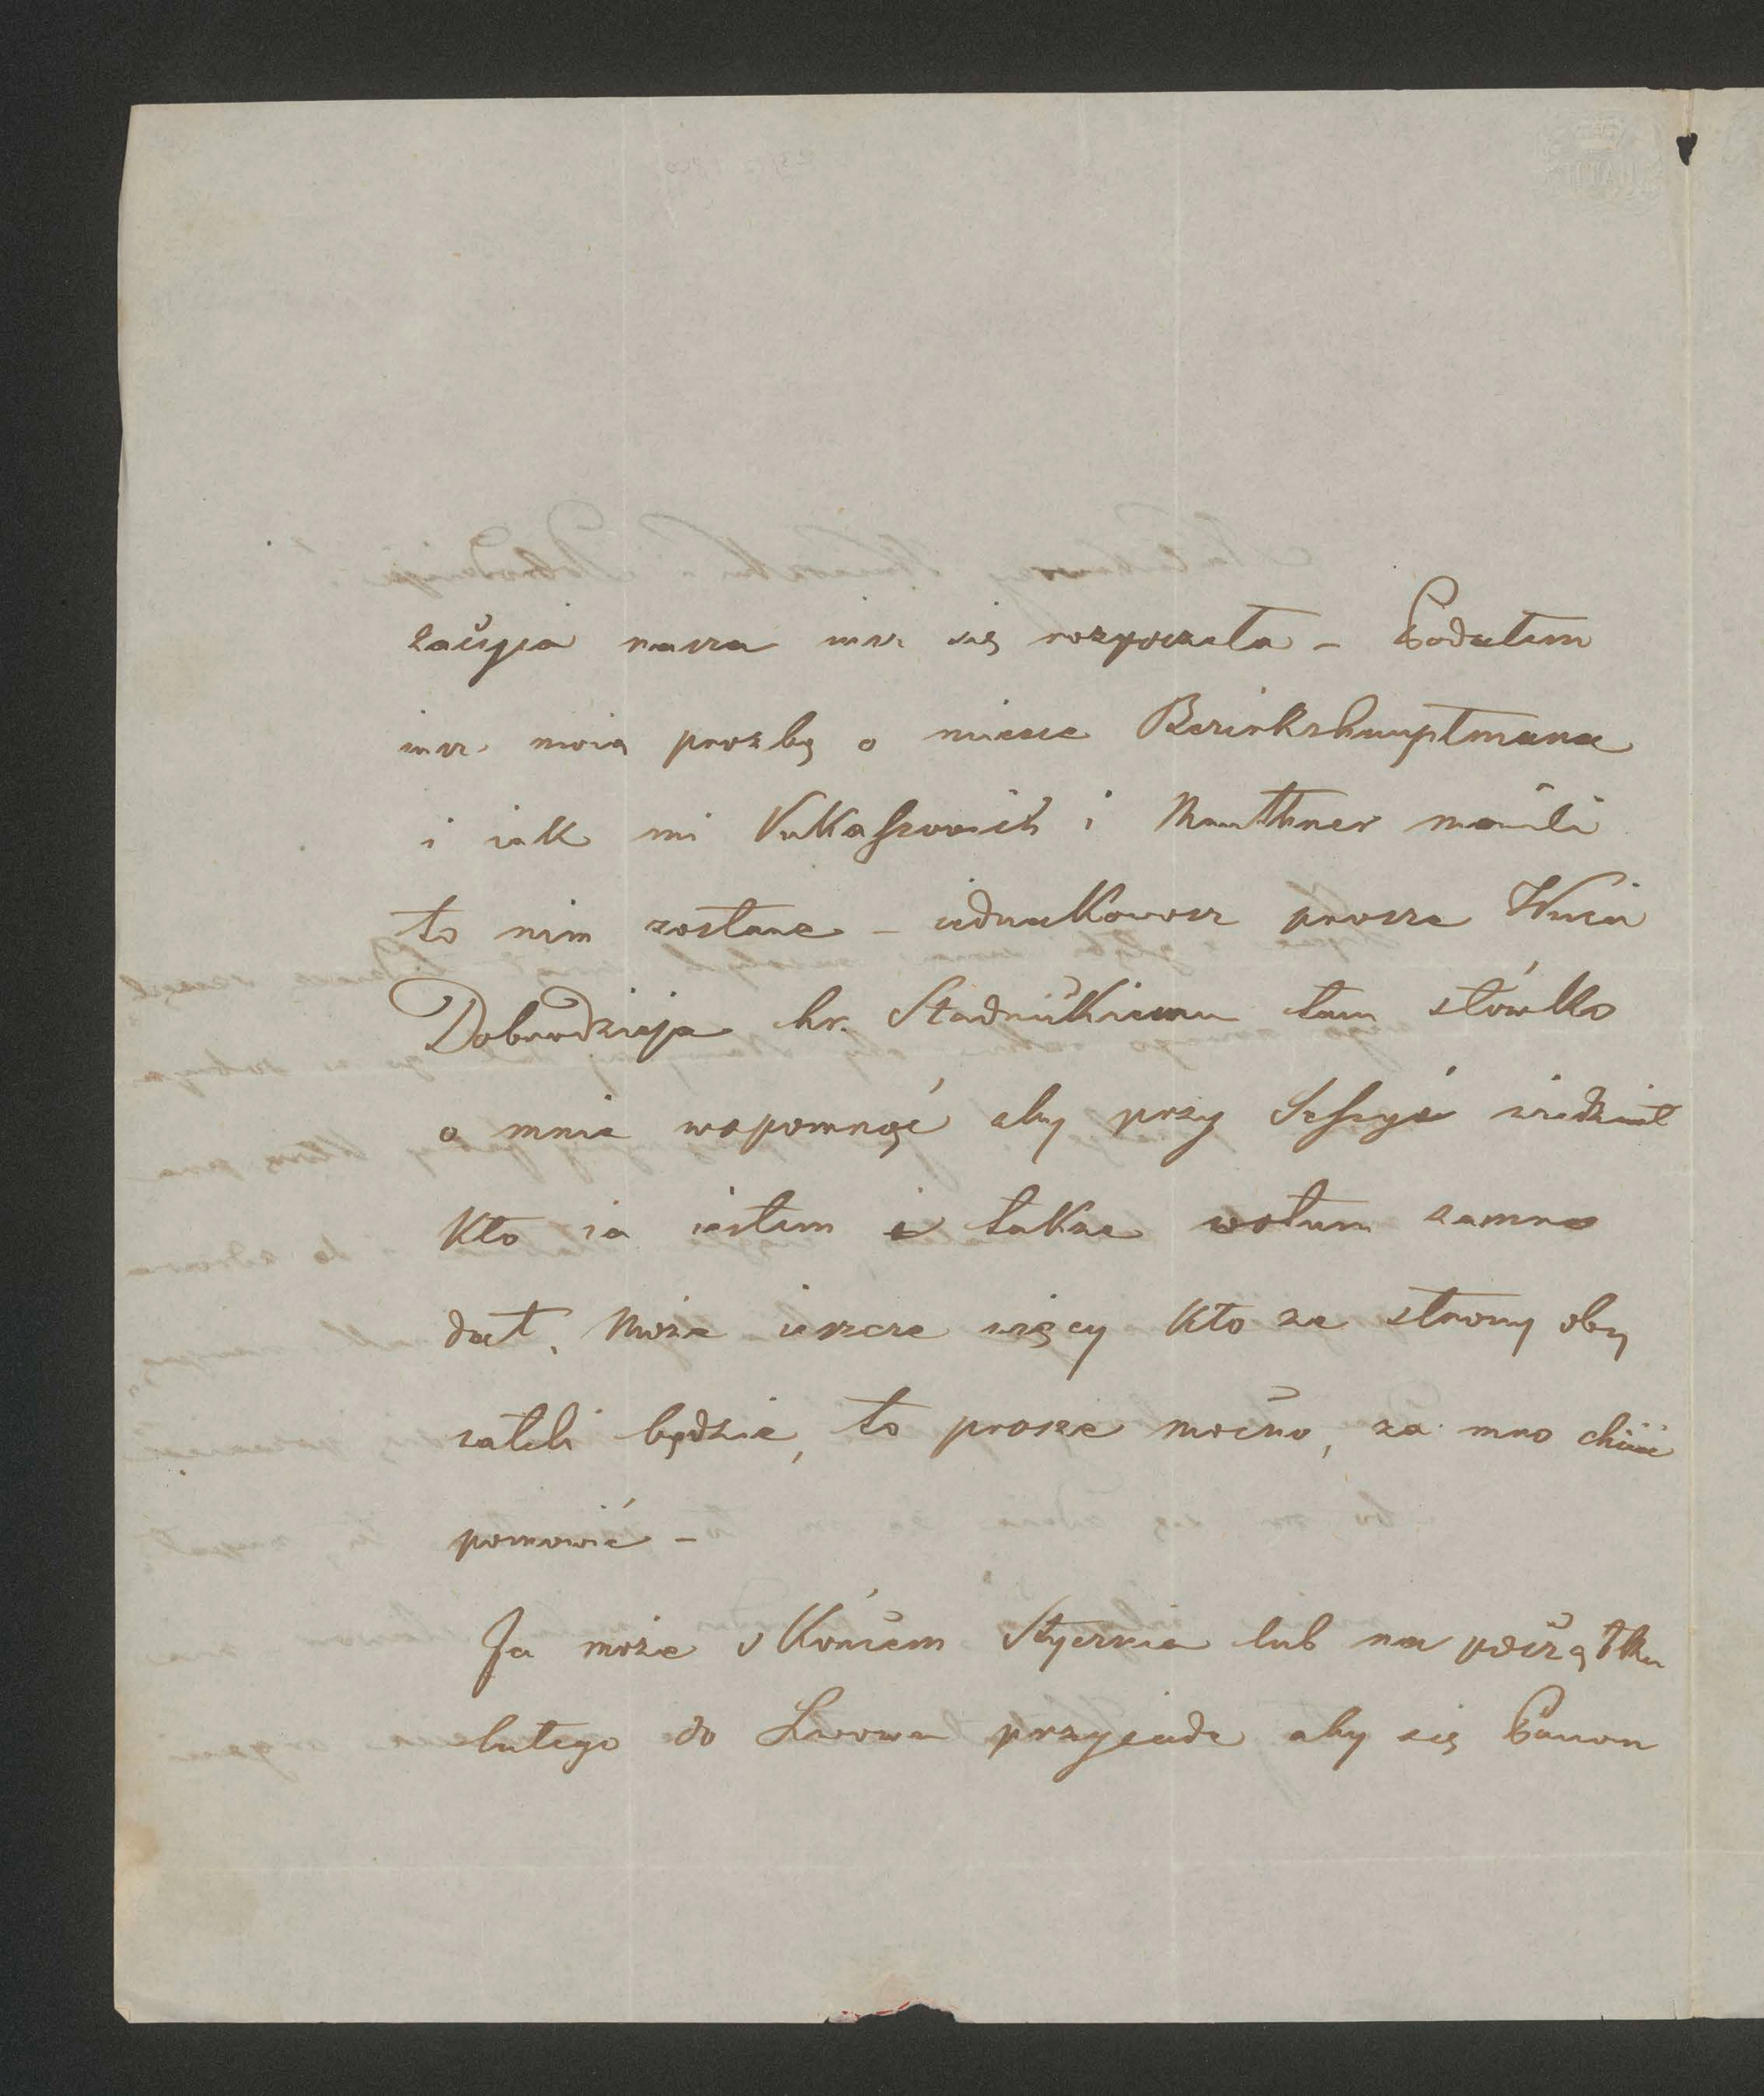 zacyja nasza iusz się rozpoczeła – Podałem
iusz moią prozbę o miesce Bezirkshauptmana
i iak mi Vukaszovich i Mauthner mowili
to nim zostane – iednakowosz prosze Wuia
Dobrodzieja hr. Stadnickiemu tam słówko
o mnie wspomnąć aby przy Sessyi wiedział
kto ia iestem i także wotum zamno
dał. Może ieszcze więcy kto ze strony oby
wateli będzie, to prosze mocno, za mno chciec
pomowić –
Ja może s Końcem Stycznia lub na początku
lutego do Lwowa przyjade aby się Panom